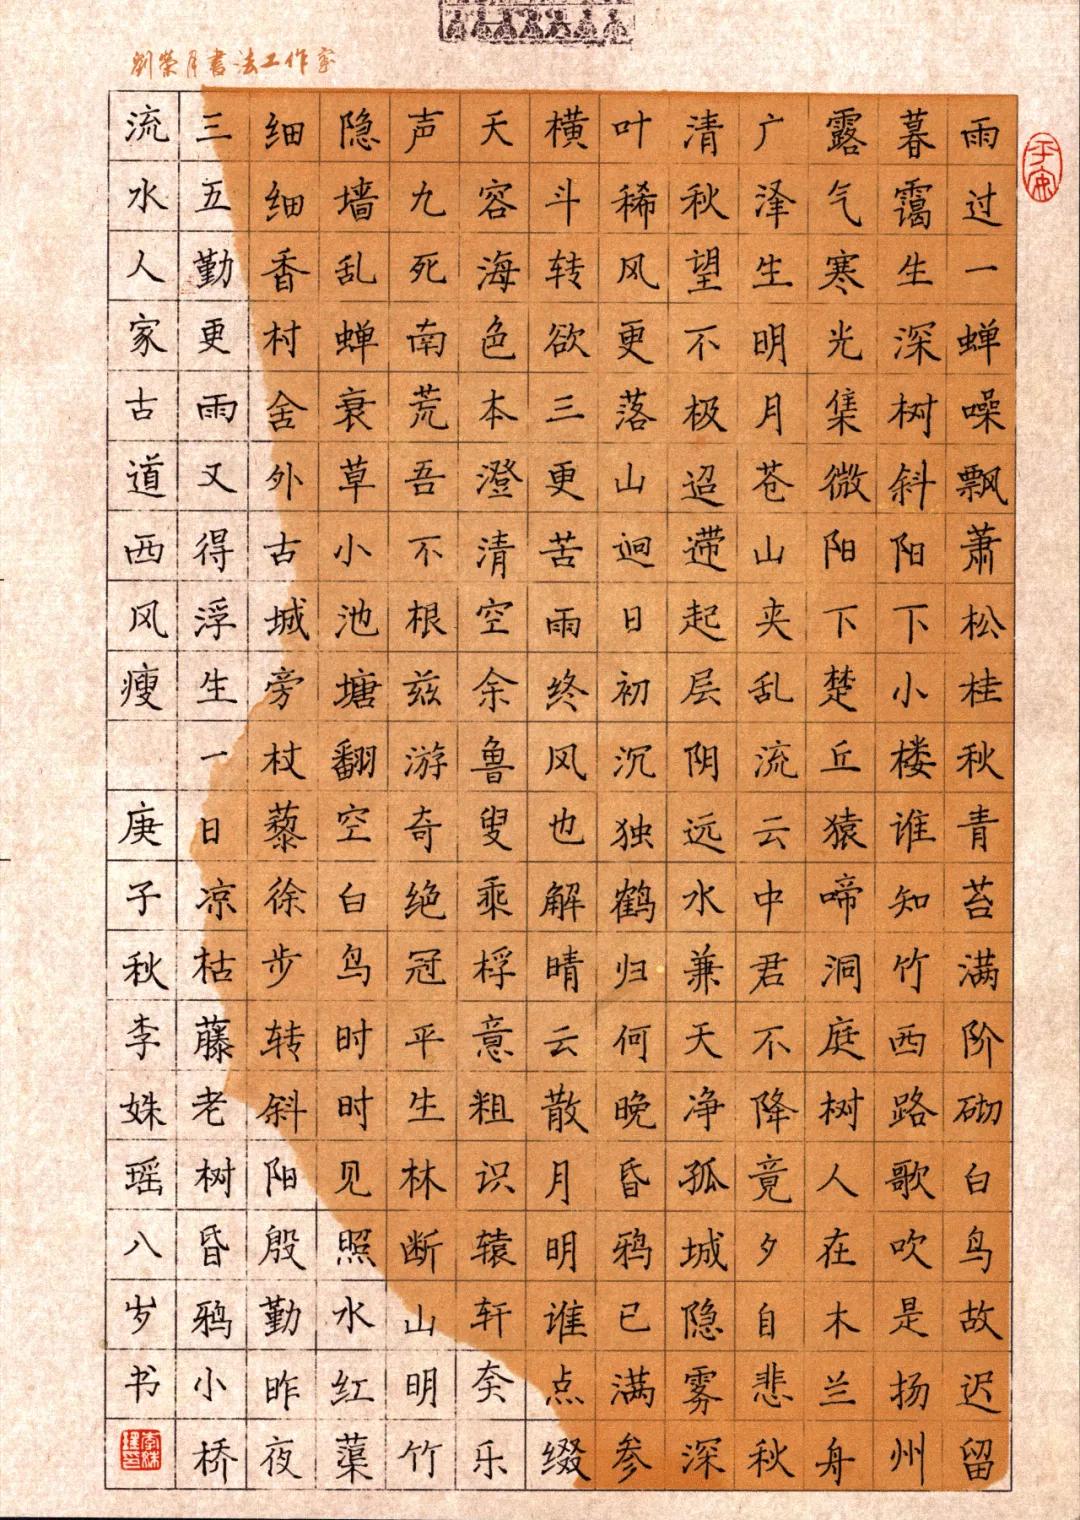 劉榮月書法工作室
平安
雨过一蝉噪飘萧松桂秋青苔满阶砌白鸟故迟留
暮霭生深树斜阳下小楼谁知竹西路歌吹是扬州
露气寒光集微阳下楚丘猿啼洞庭树人在木兰舟
广泽生明月苍山夹乱流云中君不降竟夕自悲秋
清秋望不极迢遰起层阴远水兼天净孤城隐雾深
叶稀风更落山迥日初沉独鹤归何晚昏鸦已满参
横斗转欲三更苦雨终风也解晴云散月明谁点缀
天容海色本澄清空余鲁叟乘桴意粗识辕轩奏乐
声九死南荒吾不根兹游奇绝冠平生林断山明竹
隐墙乱蝉衰草小池塘翻空白鸟时时见照水红蕖
细细香村舍外古城旁杖藜徐步转斜阳殷勤昨夜
三五勤更雨又得浮生一日凉枯藤老树昏鸦小桥
流水人家古道西风瘦 庚子秋李姝瑶八岁书
李姝瑶印